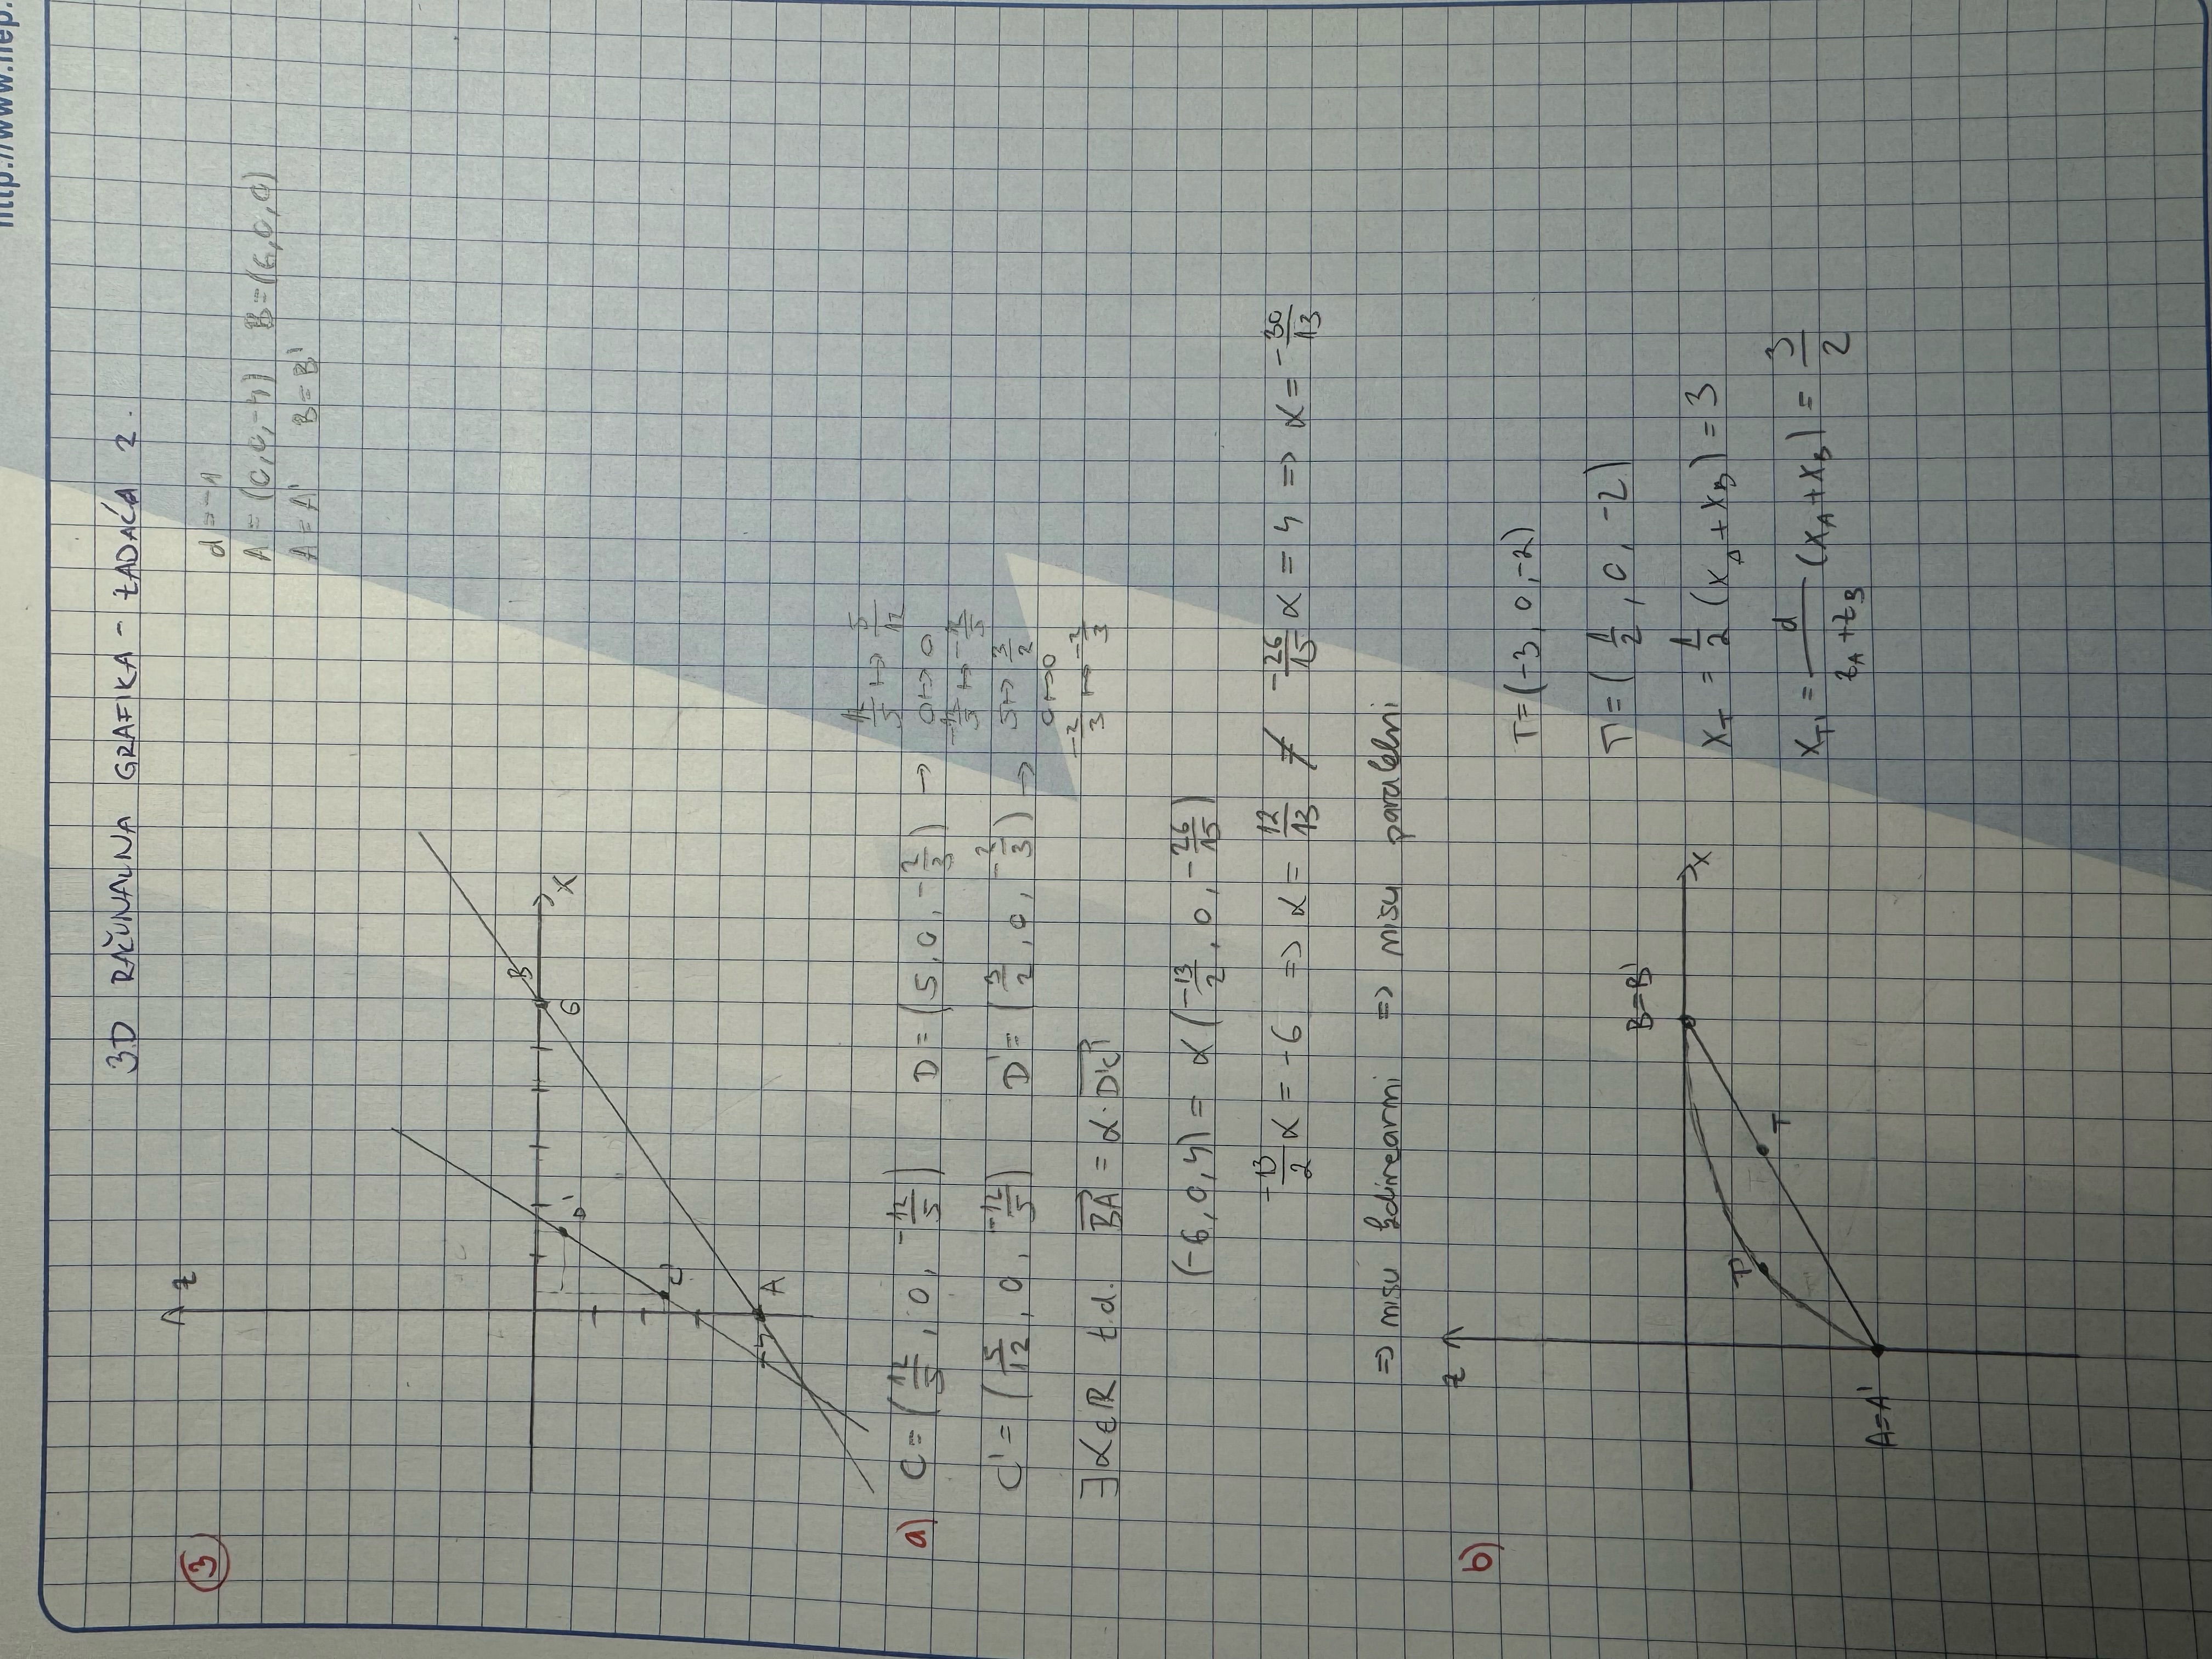 http://www.hep.
3D RAČUNALNA GRAFIKA - ZADAĆA 2.
3
z
d = -1
A = (0,0,-4) B = (6,0,0)
A = A' B = B'
B
D'
6
X
C'
-4
A
a) C = (12/5, 0, -12/5) D = (5, 0, -2/3) →
12/5 ↦ 5/12
0 ↦ 0
-12/5 ↦ -12/5
C' = (5/12, 0, -12/5) D' = (3/2, 0, -2/3) →
5 ↦ 3/2
0 ↦ 0
-2/3 ↦ -2/3
∃ α ∈ ℝ t.d. BA = α · D'C'
(-6, 0, 4) = α (-13/2, 0, -26/15)
-13/2 α = -6 ⇒ α = 12/13 ≠ -26/15 α = 4 ⇒ α = -30/13
⇒ nisu kolinearni ⇒ nisu paralelni
b)
z
T = (-3, 0, -2)
T' = (1/2, 0, -2)
B = B'
x
x_T = 1/2 (x_A + x_B) = 3
T'
T
x_T' = d/(z_A + z_B) (x_A + x_B) = 3/2
A = A'